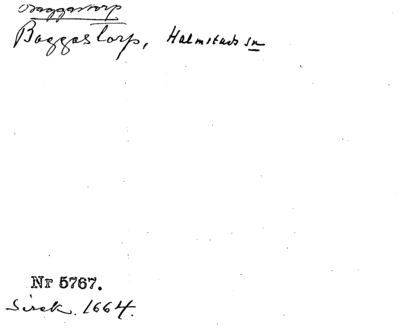 Baggastorp
Baggastorp, Halmstads sn
Nr 5767.
Sirek. 1664.